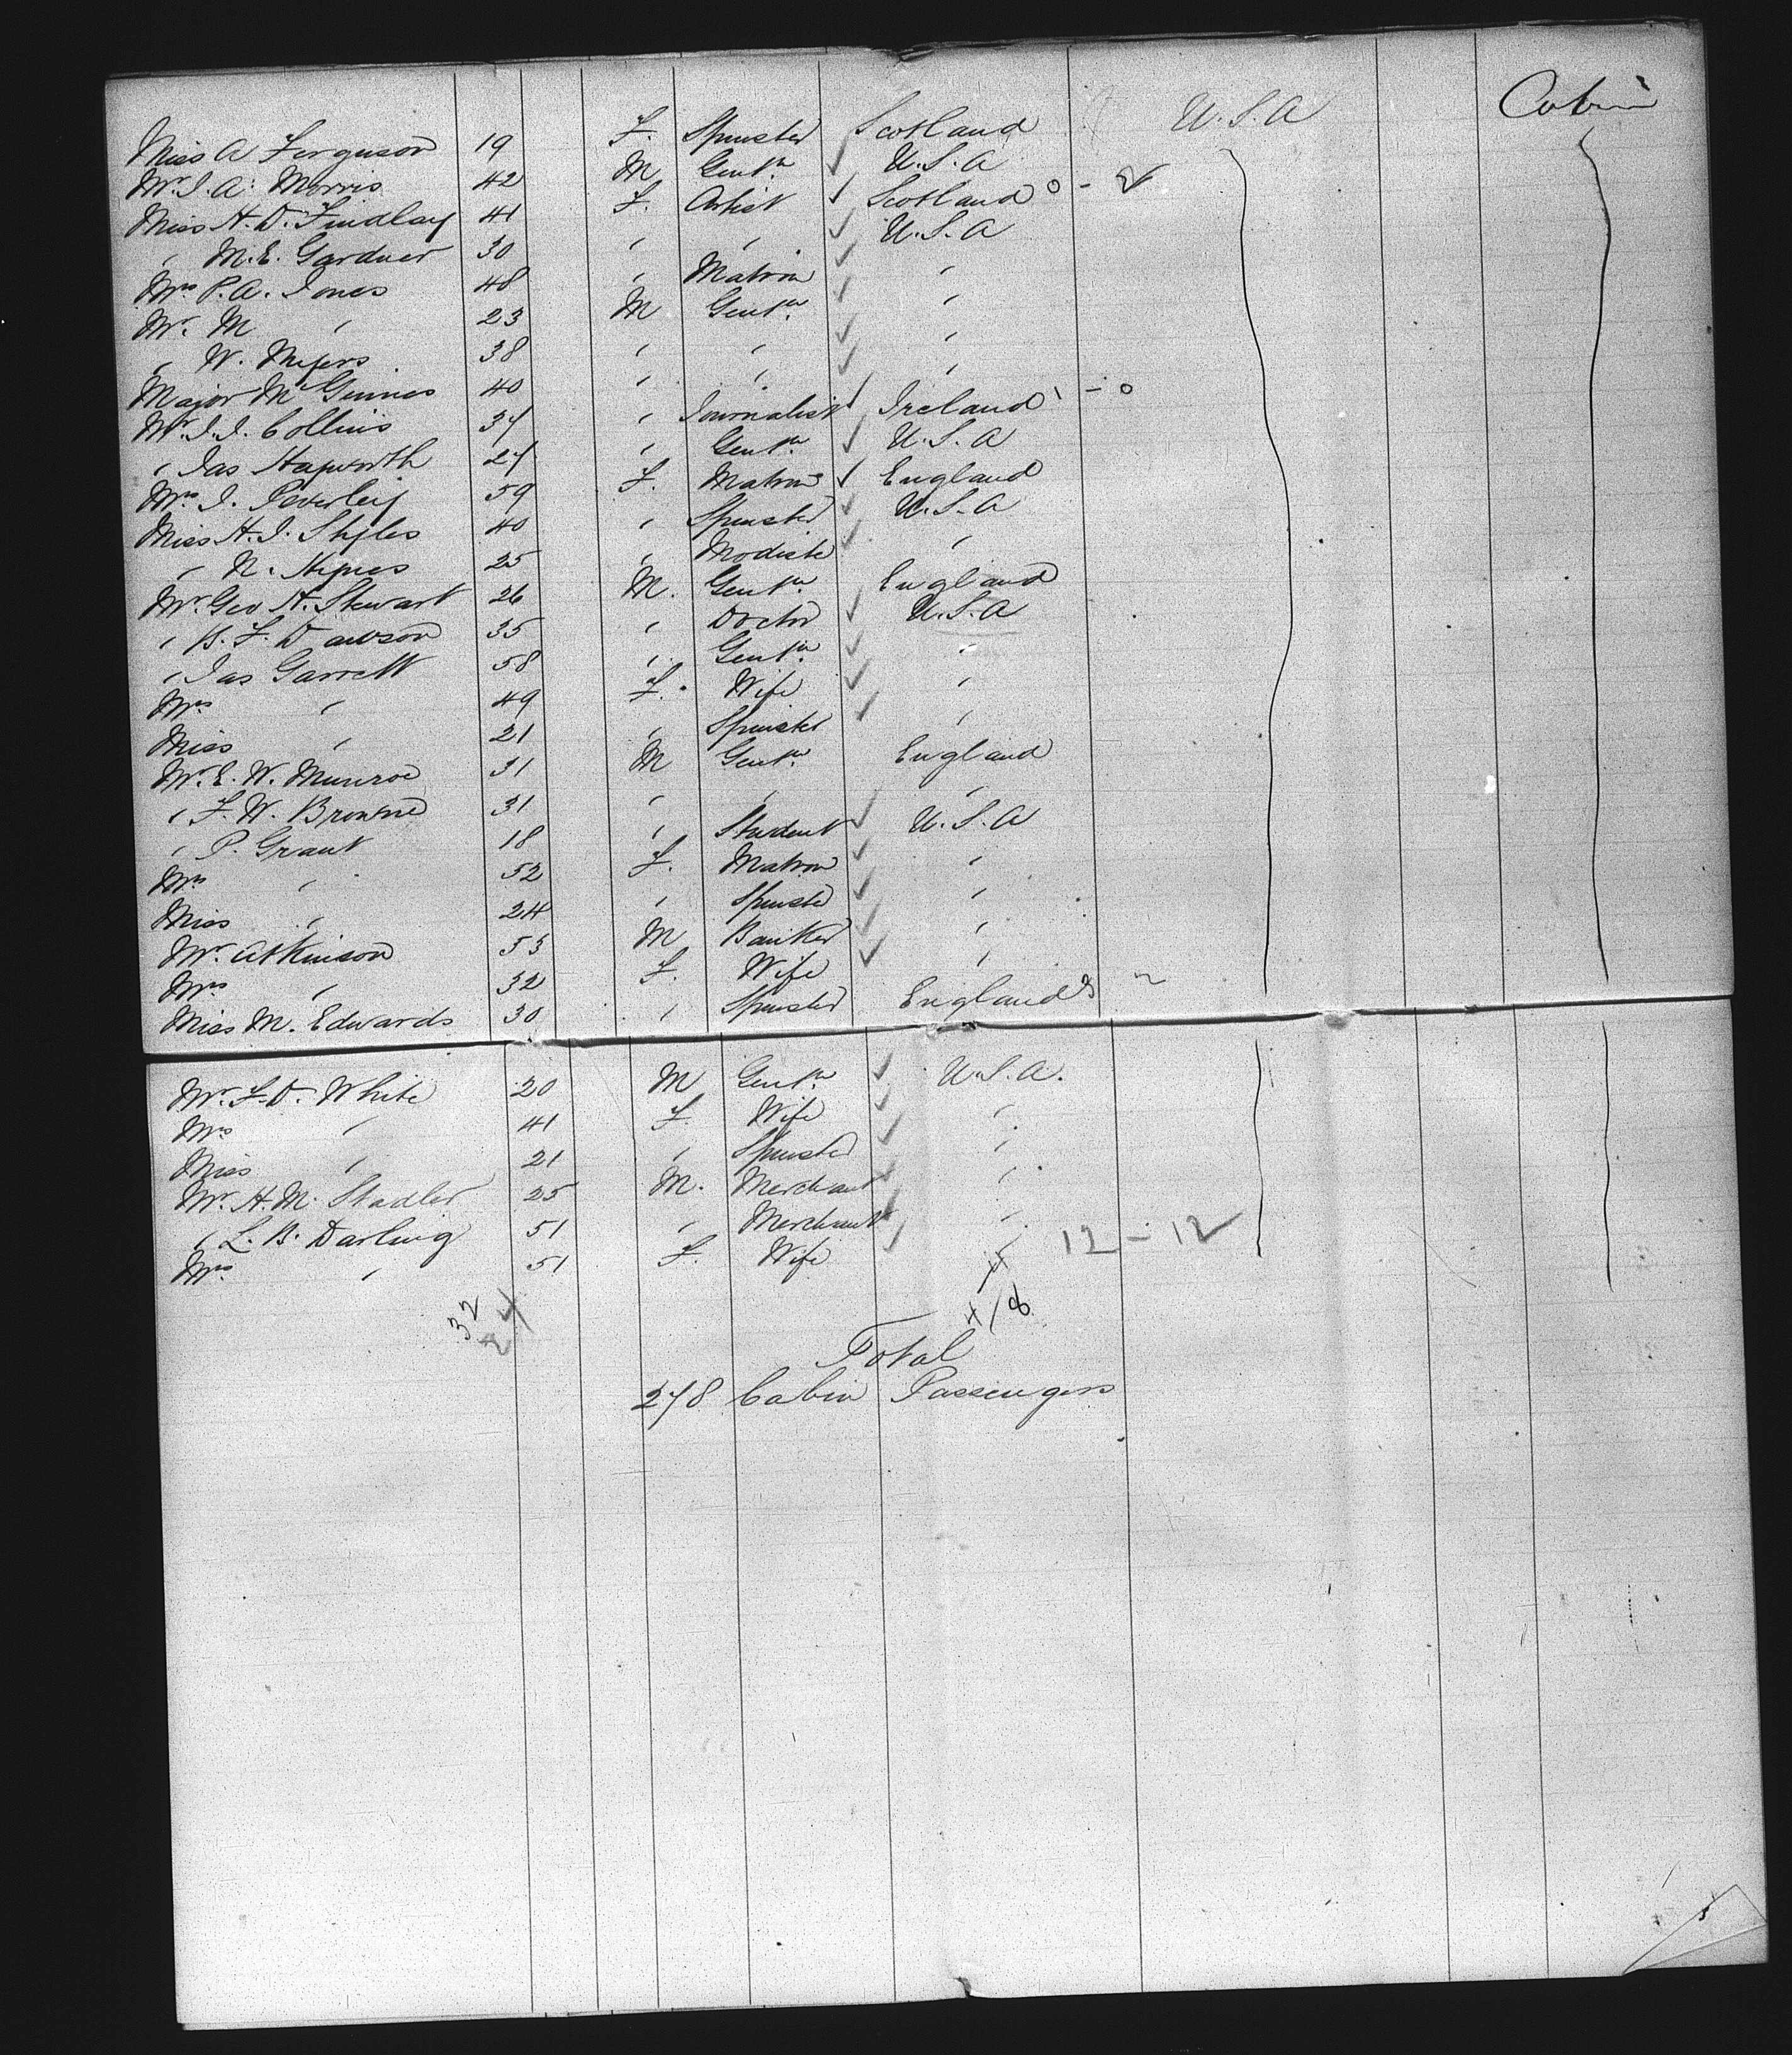 Miss A Ferguson 19 F. Spinster Scotland U.S.A Cabin
Mr. J. A. Morris 42 M Gentn. ✓ U.S.A
Miss H. D. Findlay 41 F. Artist ✓ Scotland 0 - 2
" M. E. Gardner 30 " " ✓ U.S.A
Mrs. P. A. Jones 48 " Matron ✓ "
Mr. M " 23 M Gentn. ✓ "
" W. Myers 38 " " ✓ "
Major McGinnes 40 " " ✓ "
Mr. J. J. Collins 37 " Journalist ✓ Ireland 1 - 0
" Jas Hapworth 27 " Gentn. ✓ U.S.A
Mrs. J. 59 F. Matron ✓ England
Miss H. J. Styles 40 " Spinster ✓ U.S.A
" N. Hynes 25 " Modiste ✓ "
Mr. Geo H. Stewart 26 M. Gentn. England
" B. F. Dawson 35 " Doctor ✓ U.S.A
" Jas Garrett 58 " Gentn. ✓ "
Mrs. " 49 F. Wife ✓ "
Miss " 21 " Spinster ✓ "
Mr. E. W. Munroe 31 M Gentn. England
" F. W. Browne 31 " " "
" P. Grant 18 " Student ✓ U.S.A
Mrs " 52 F. Matron ✓ "
Miss " 24 " Spinster ✓ "
Mr. Atkinson 53 M Banker ✓ "
Mrs " 32 F. Wife ✓ "
Miss M. Edwards 30 " Spinster England
Mr. F. D. White 20 M Gentn. ✓ U.S.A.
Mrs " 41 F. Wife ✓ "
Miss " 21 " Spinster ✓ "
Mr. H. M. Stadler 25 M. Merchant ✓ "
" L. B. Darling 51 " Merchant ✓ "
Mrs. " 51 F. Wife ✓ " 12 - 12
32
24
4/8
Total
278 Cabin Passengers